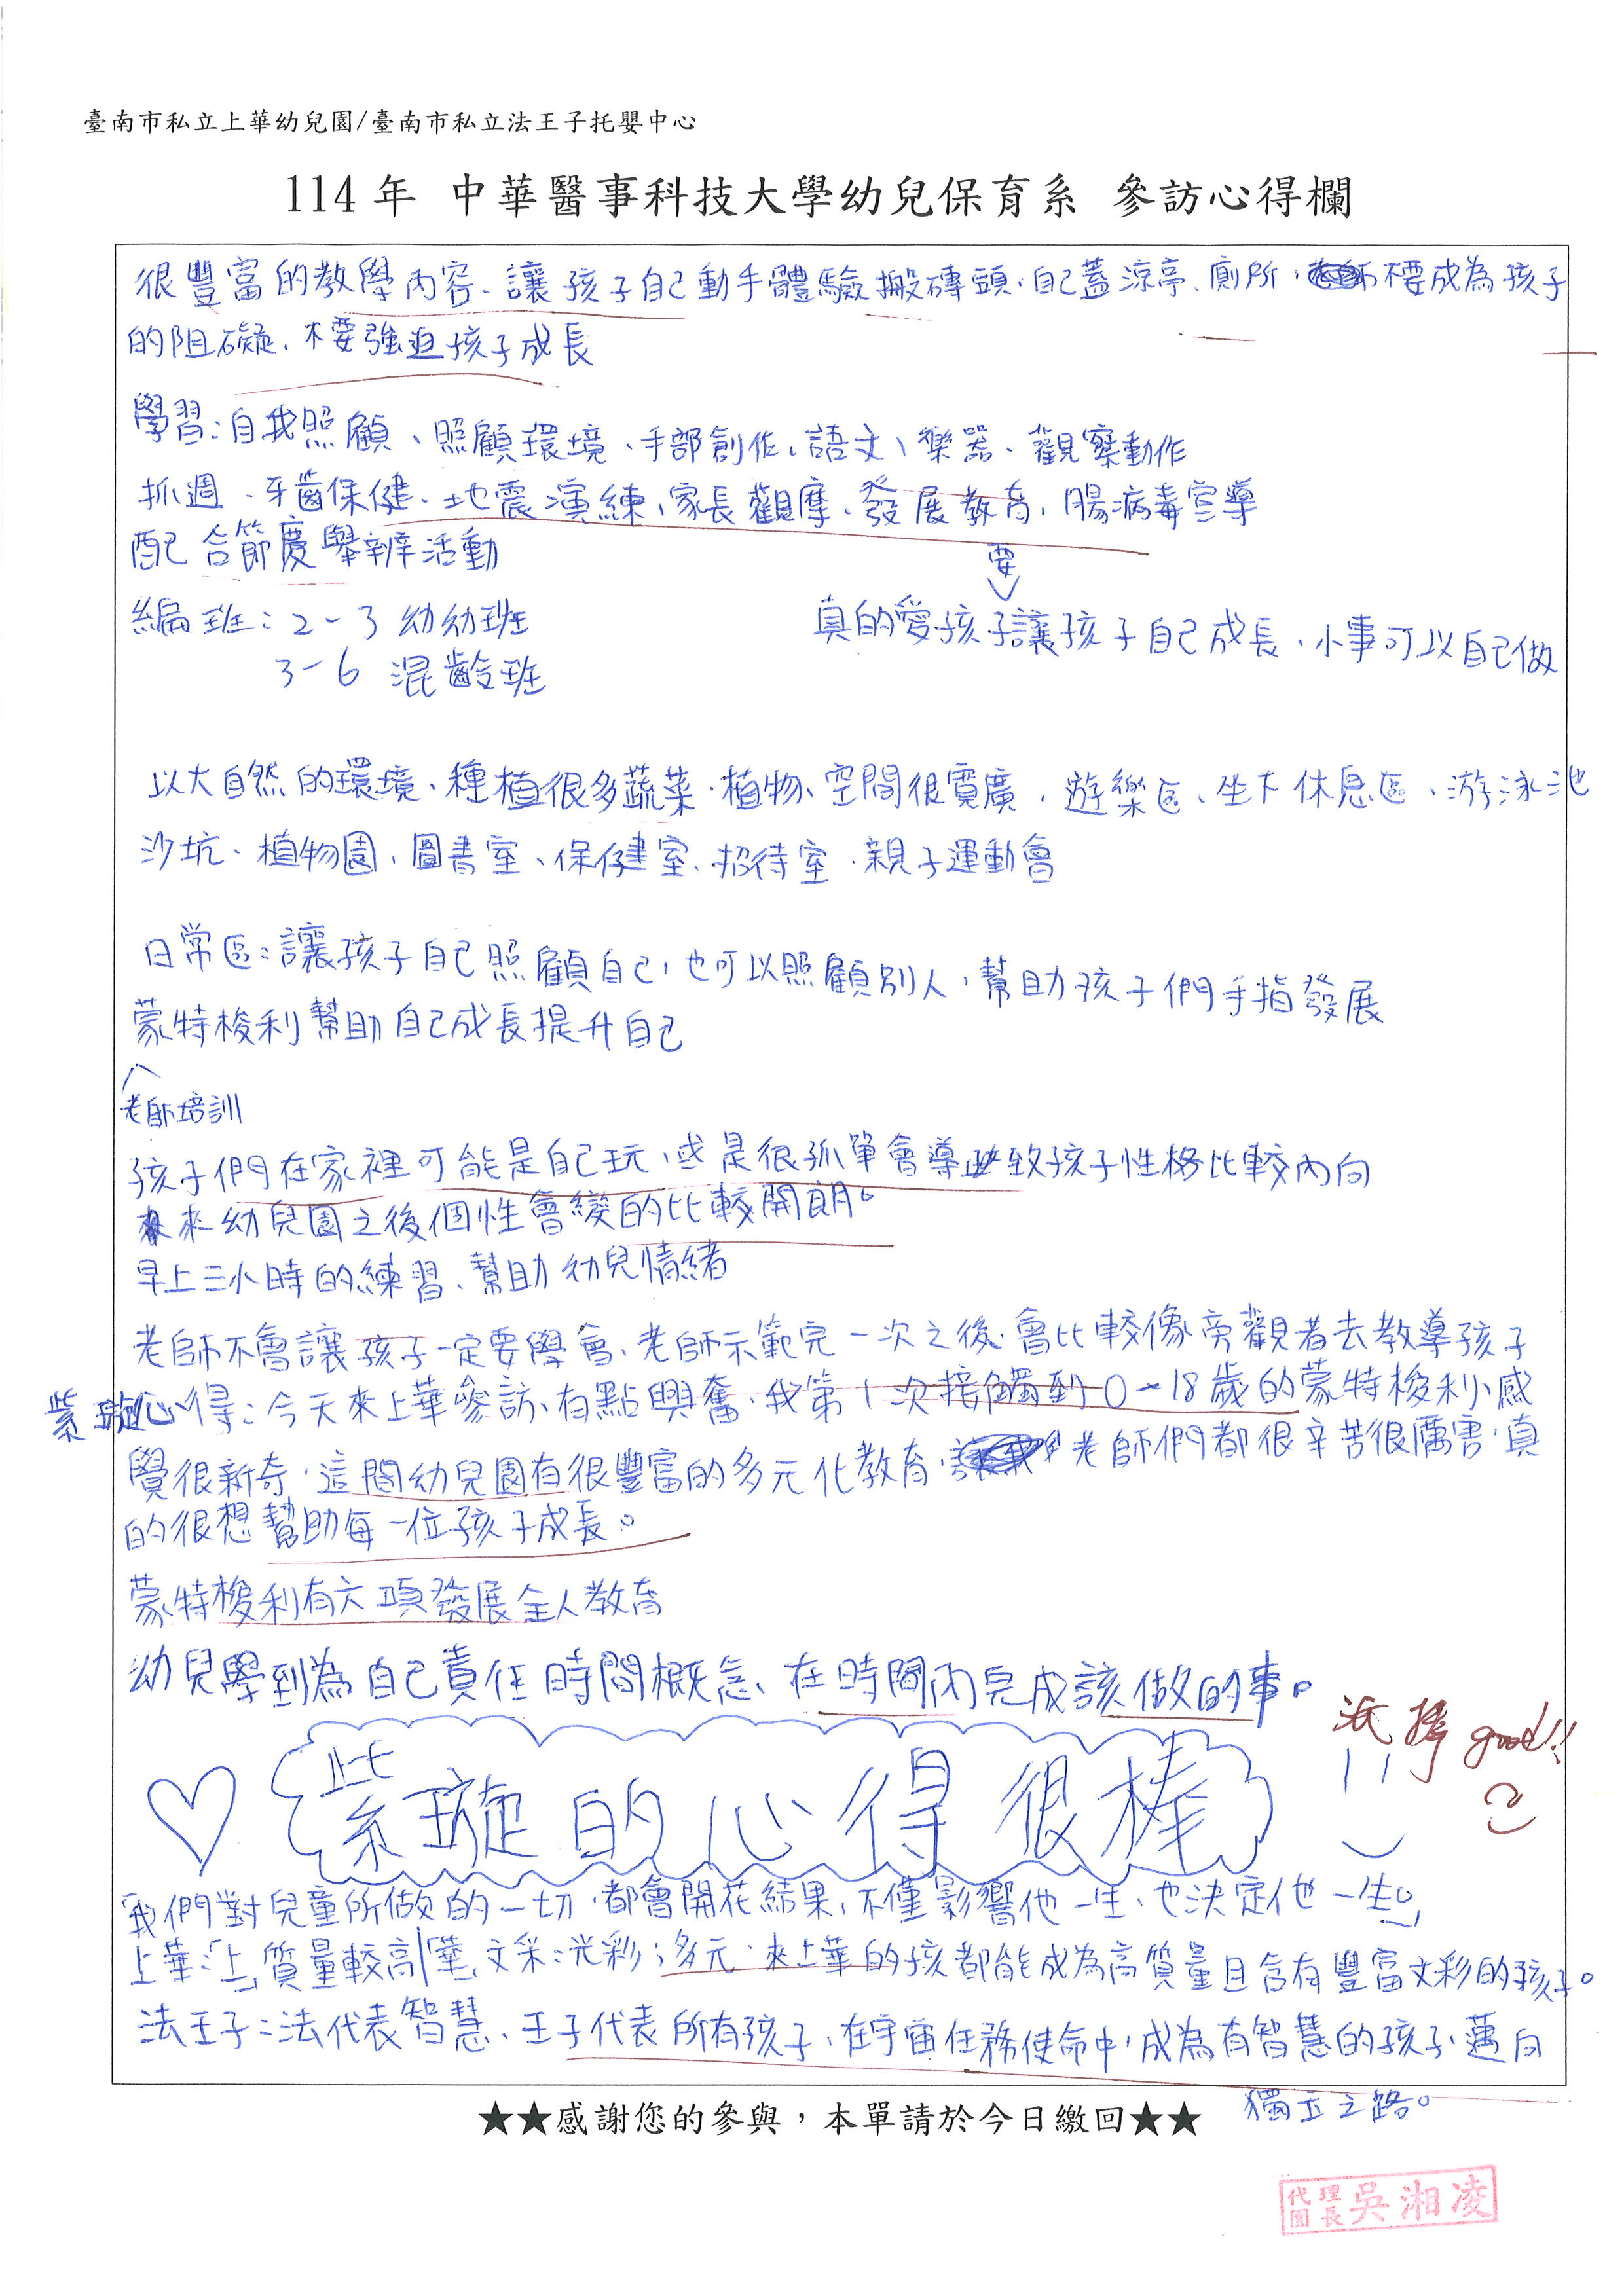 臺南市私立上華幼兒園/臺南市私立法王子托嬰中心
114年 中華醫事科技大學幼兒保育系 參訪心得欄
很豐富的教學內容、讓孩子自己動手體驗搬磚頭、自己蓋涼亭、廁所,不要成為孩子
的阻礙、不要強迫孩子成長
學習:自我照顧、照顧環境、手部創作、語文、樂器、觀察動作
抓週、牙齒保健、地震演練、家長觀摩、發展教育、腸病毒宣導
配合節慶舉辦活動
要
編班:2-3 幼幼班
真的愛孩子讓孩子自己成長、小事可以自己做
3-6 混齡班
以大自然的環境、種植很多蔬菜、植物、空間很寬廣、遊樂區、坐下休息區、游泳池
沙坑、植物園、圖書室、保健室、招待室、親子運動會
日常區:讓孩子自己照顧自己,也可以照顧別人,幫助孩子們手指發展
蒙特梭利幫助自己成長提升自己
老師培訓
孩子們在家裡可能是自己玩,或是很孤單會導致孩子性格比較內向
來幼兒園之後個性會變的比較開朗。
早上三小時的練習、幫助幼兒情緒
老師不會讓孩子一定要學會、老師示範完一次之後、會比較像旁觀者去教導孩子
紫璇心得:今天來上華參訪、有點興奮、我第1次接觸到0-18歲的蒙特梭利、感
覺很新奇,這間幼兒園有很豐富的多元化教育、老師們都很辛苦很厲害,真
的很想幫助每一位孩子成長。
蒙特梭利有六項發展全人教育
幼兒學到為自己責任時間概念、在時間內完成該做的事。
紫璇的心得很棒
很棒 good!!
「我們對兒童所做的一切,都會開花結果,不僅影響他一生,也決定他一生。」
上華:「上」質量較高「華」文采:光彩;多元、來上華的孩都能成為高質量且含有豐富文彩的孩子。
法王子:法代表智慧、王子代表所有孩子,在宇宙任務使命中,成為有智慧的孩子,邁向
獨立之路。
★★感謝您的參與,本單請於今日繳回★★
代理園長 吳湘凌